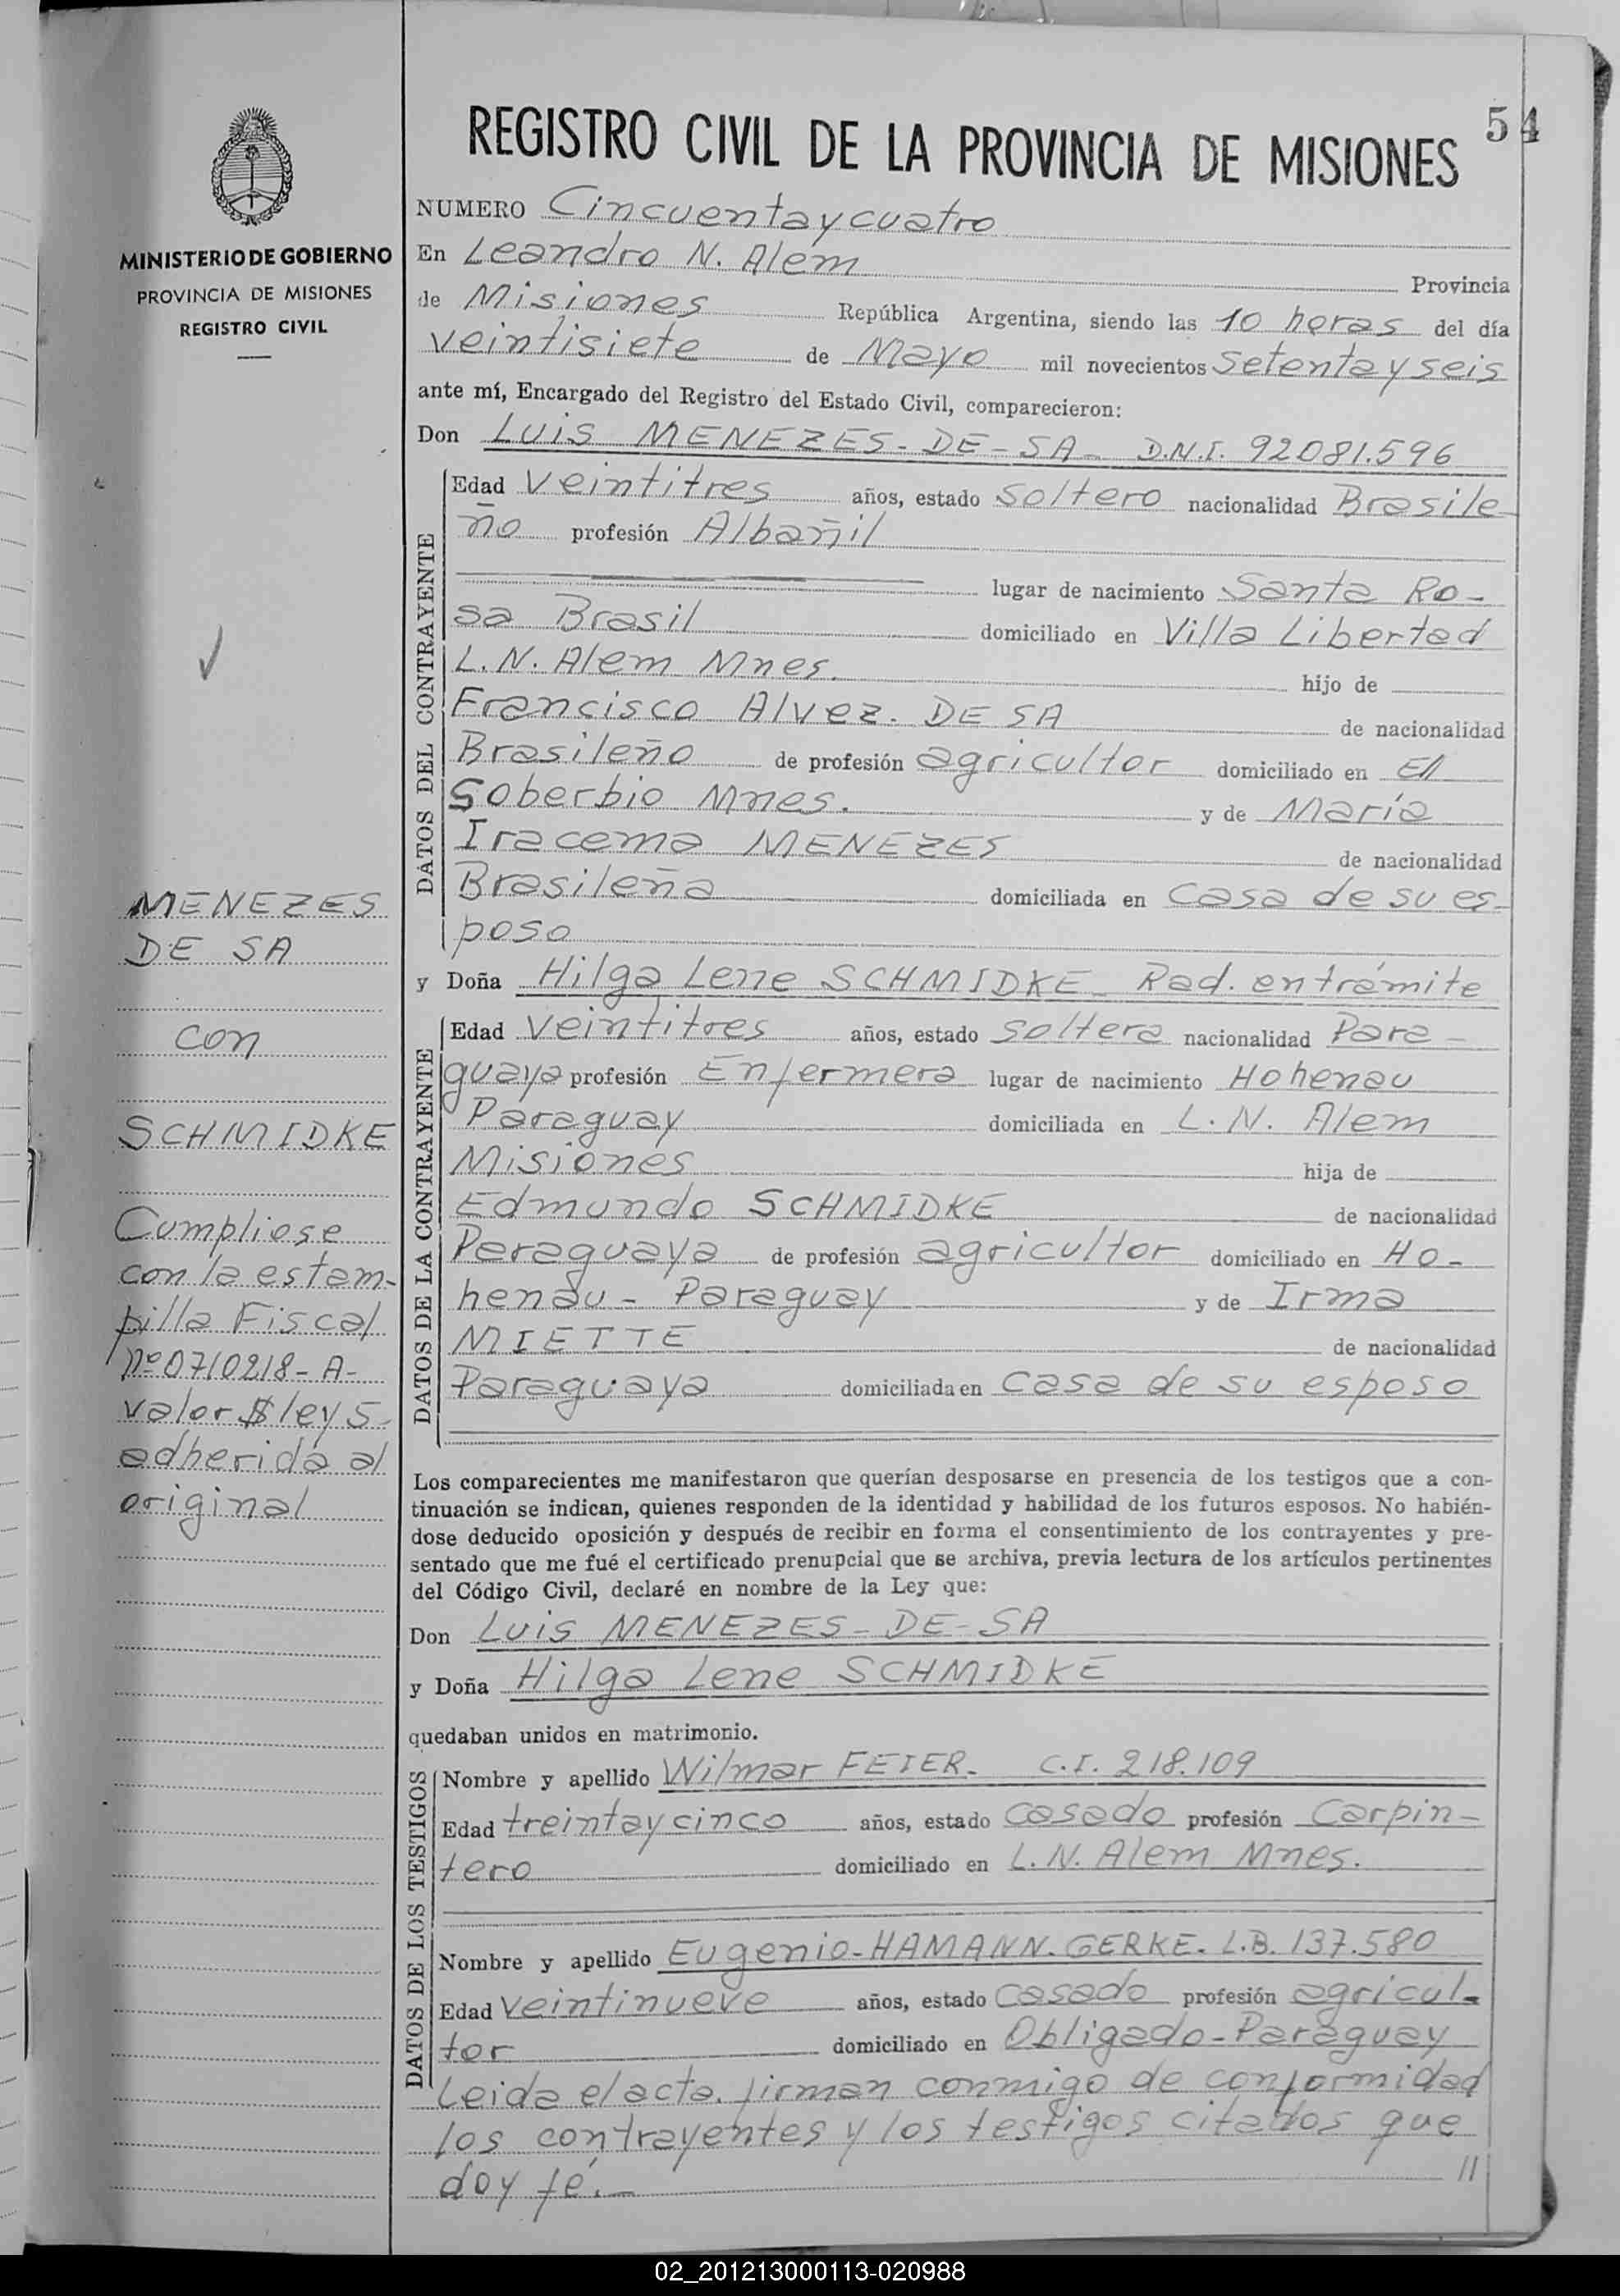 54
REGISTRO CIVIL DE LA PROVINCIA DE MISIONES
MINISTERIO DE GOBIERNO
PROVINCIA DE MISIONES
REGISTRO CIVIL
MENEZES
DE SA
con
SCHMIDKE
Cumpliose
con la estam-
pilla Fiscal
nº 0710218-A-
valor $ ley 5-
adherida al
original
NUMERO Cincuentaycuatro
En Leandro N. Alem Provincia
de Misiones República Argentina, siendo las 10 horas del día
veintisiete de Mayo mil novecientos setentayseis
ante mí, Encargado del Registro del Estado Civil, comparecieron:
Don Luis MENEZES-DE-SA- D.N.I. 92081.596
DATOS DEL CONTRAYENTE
Edad veintitres años, estado soltero nacionalidad Brasile-
ño profesión Albañil
lugar de nacimiento Santa Ro-
sa Brasil domiciliado en Villa Libertad
L.N. Alem Mnes. hijo de
Francisco Alvez. DE SA de nacionalidad
Brasileño de profesión agricultor domiciliado en El
Soberbio Mnes. y de María
Iracema MENEZES de nacionalidad
Brasileña domiciliada en casa de su es-
poso
y Doña Hilga Lene SCHMIDKE- Rad. entrámite
DATOS DE LA CONTRAYENTE
Edad veintitres años, estado soltera nacionalidad Para-
guaya profesión Enfermera lugar de nacimiento Hohenau
Paraguay domiciliada en L.N. Alem
Misiones hija de
Edmundo SCHMIDKE de nacionalidad
Paraguaya de profesión agricultor domiciliado en Ho-
henau- Paraguay y de Irma
MIETTE de nacionalidad
Paraguaya domiciliada en casa de su esposo
Los comparecientes me manifestaron que querían desposarse en presencia de los testigos que a con-
tinuación se indican, quienes responden de la identidad y habilidad de los futuros esposos. No habién-
dose deducido oposición y después de recibir en forma el consentimiento de los contrayentes y pre-
sentado que me fué el certificado prenupcial que se archiva, previa lectura de los artículos pertinentes
del Código Civil, declaré en nombre de la Ley que:
Don Luis MENEZES-DE-SA
y Doña Hilga Lene SCHMIDKE
quedaban unidos en matrimonio.
DATOS DE LOS TESTIGOS
Nombre y apellido Wilmar FEIER- C.I. 218.109
Edad treintaycinco años, estado casado profesión Carpin-
tero domiciliado en L.N. Alem Mnes.
Nombre y apellido Eugenio-HAMANN-GERKE- L.B. 137.580
Edad veintinueve años, estado casado profesión agricul-
tor domiciliado en Obligado-Paraguay
Leida el acta, firman conmigo de conformidad
los contrayentes y los testigos citados que
doy fé.- //
02_201213000113-020988